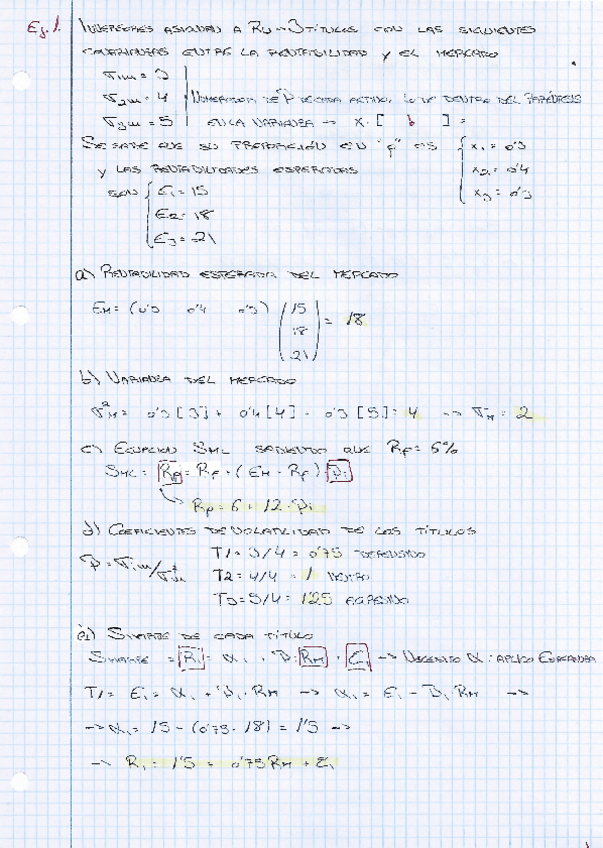 Ej. 1. INVERSORES ASIGNAN A RV → 3 TÍTULOS CON LAS SIGUIENTES
COVARIANZAS ENTRE LA RENTABILIDAD Y EL MERCADO
σ1M = 3
σ2M = 4 NUMERADOR DE β DE CADA ACTIVO. DENTRO DEL PARÉNTESIS
σ3M = 5 EN LA VARIANZA → X · [ ] =
SE SABE QUE SU PROPORCIÓN EN ES X1 = 0'3
Y LAS RENTABILIDADES ESPERADAS X2 = 0'4
SON E1 = 15 X3 = 0'3
E2 = 18
E3 = 21
a) RENTABILIDAD ESPERADA DEL MERCADO
EM = (0'3 0'4 0'3) (15 18 21) = 18
b) VARIANZA DEL MERCADO
σ²M = 0'3 [3] + 0'4 [4] + 0'3 [5] = 4 → σM = 2
c) ECUACIÓN SML SABIENDO QUE RF = 6%
SML = = RF + (EM - RF) · βi
= 6 + 12 · βi
d) COEFICIENTES DE VOLATILIDAD DE LOS TÍTULOS
β = σiM/σ²M T1 = 3/4 = 0'75 DEFENSIVO
T2 = 4/4 = 1 NEUTRO
T3 = 5/4 = 1'25 AGRESIVO
e1) SHARPE DE CADA TÍTULO
SHARPE = Ri = αi + βi RM + Ei → NECESITO α: APLICO ESPERANZA
T1 = E1 = α1 + β1 · RM → α1 = E1 - β1 RM →
→ α1 = 15 - (0'75 · 18) = 1'5 →
→ R1 = 1'5 + 0'75 RM + E1